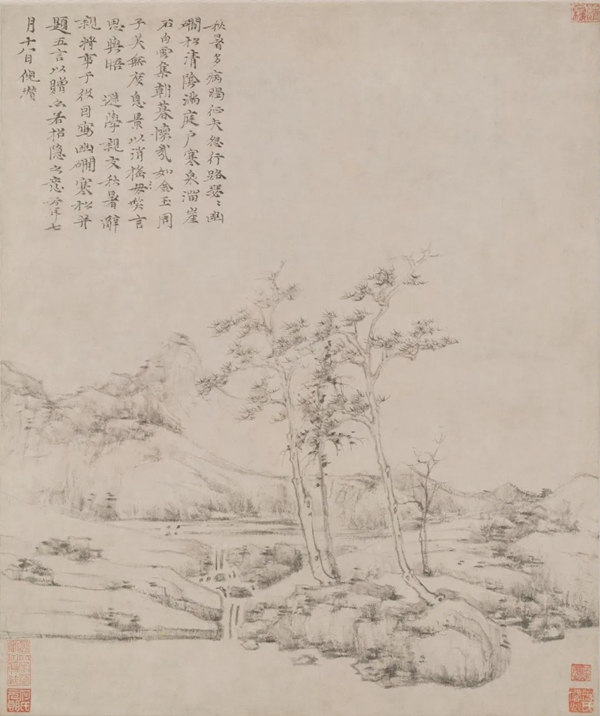 秋暑多病暍征夫怨行路瑟〻幽
磵松清陰滿庭户寒泉溜崖
石白雲集朝暮懷哉如金玉周
子美無度息景以消搖咲言
思與晤 遜學親友秋暑辭
親將事于役因寫幽磵寒松并
題五言以贈亦若招隱之意云耳七
月十八日倪瓚